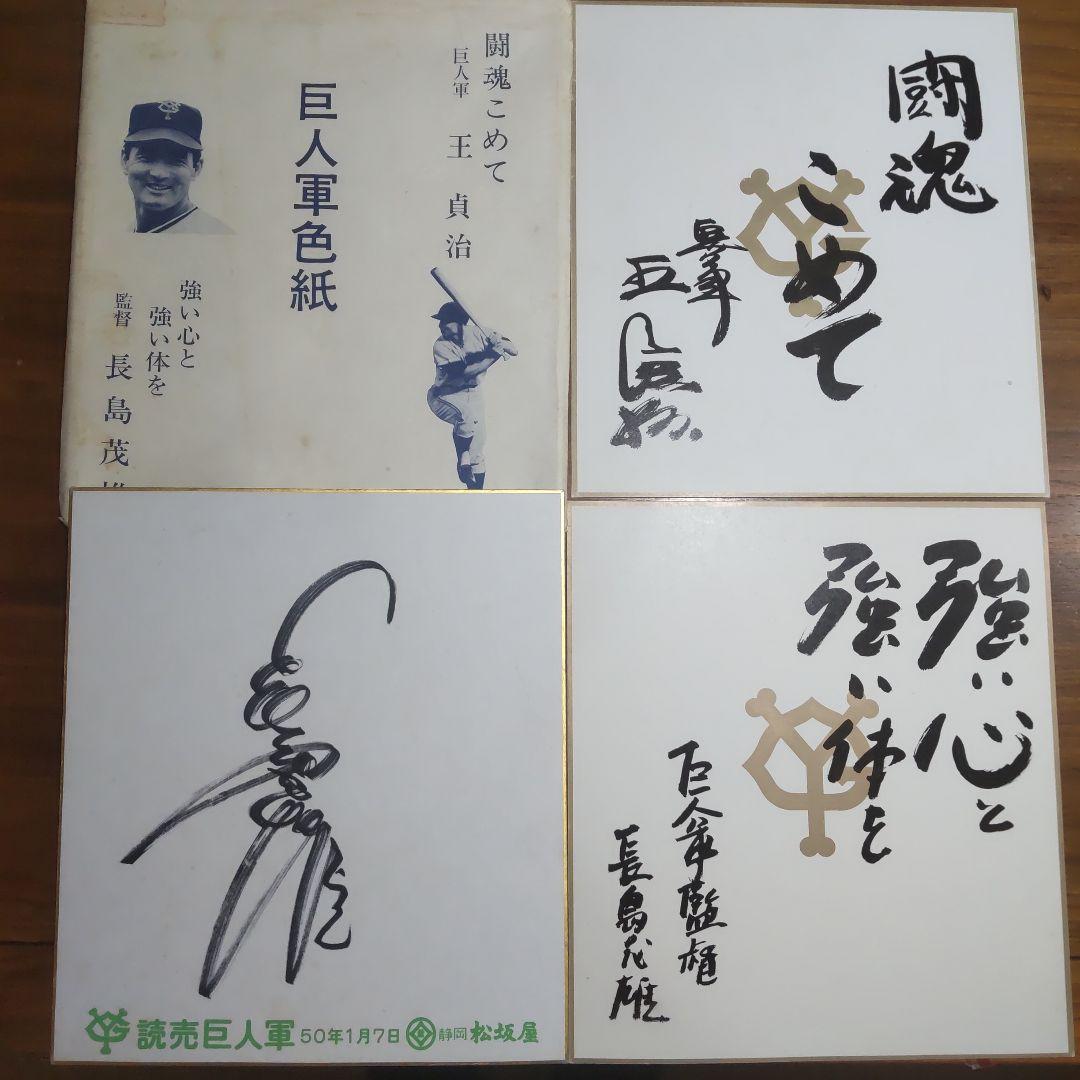 闘魂こめて
巨人軍 王貞治
巨人軍色紙
強い心と
強い体を
監督 長島茂雄
闘魂
こめて
巨人軍
王貞治
強い心と
強い体を
巨人軍監督
長島茂雄
読売巨人軍 50年1月7日 静岡 松坂屋